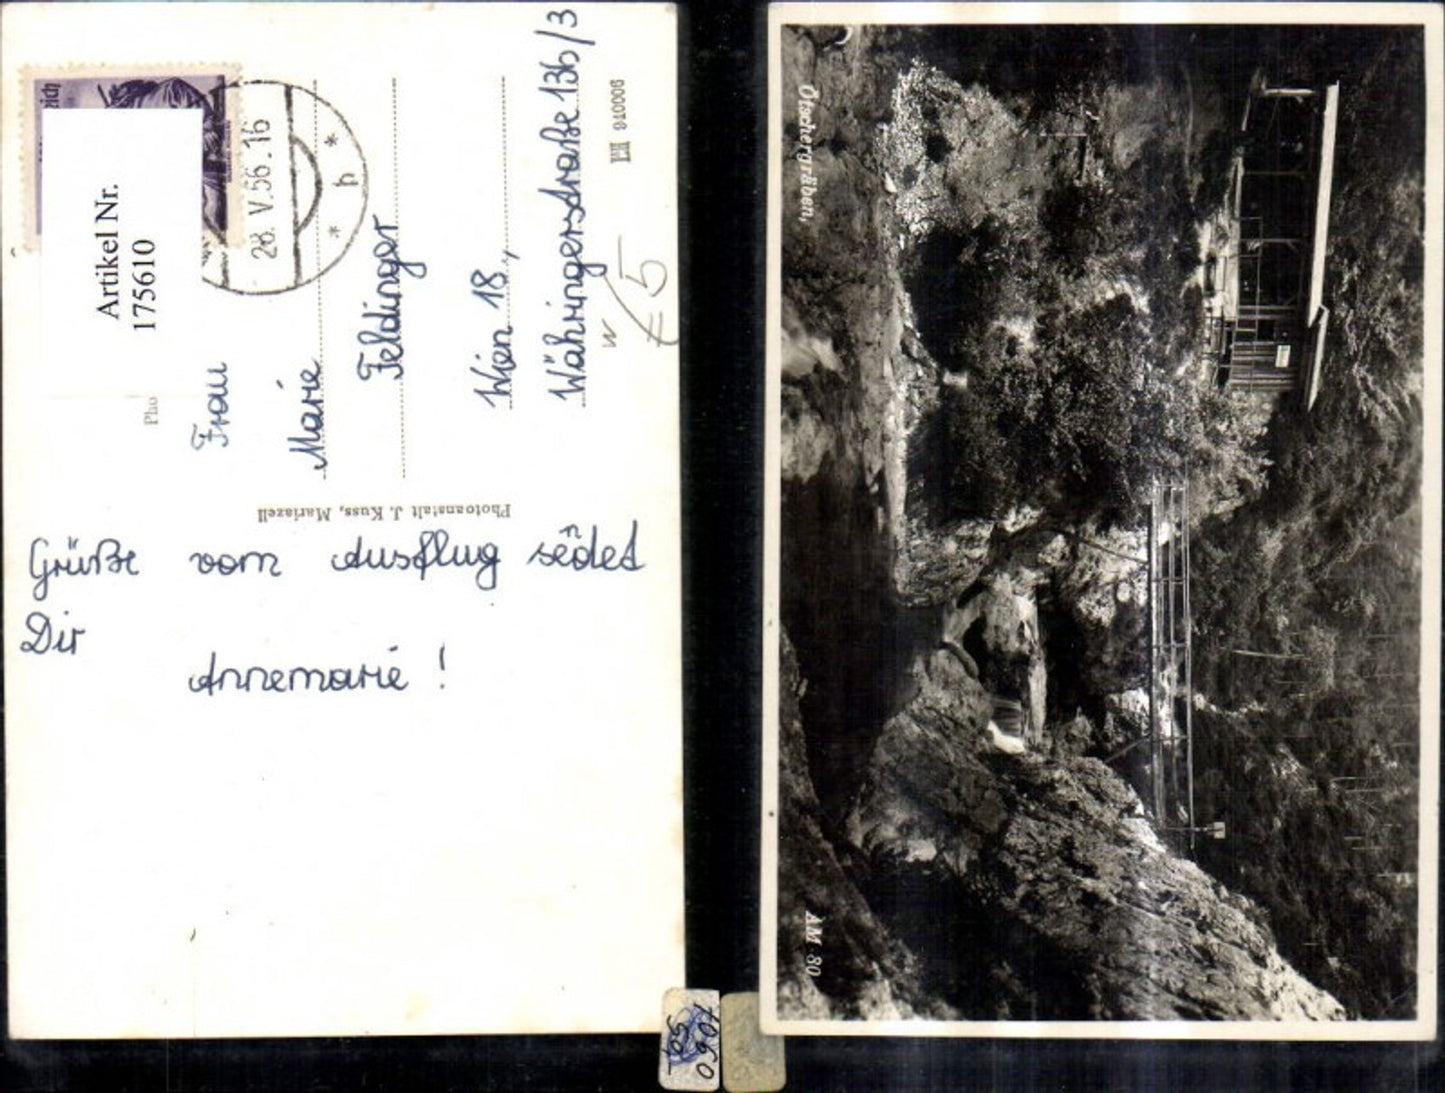 Artikel Nr.
175610
eich
28. V. 56. 16
* h *
Pho
Frau
Marie
Feldinger
Wien 18.,
Währingerstraße 136/3
910006
€ 5
Photoanstalt J. Kuss, Mariazell
Grüße vom Ausflug sendet
Dir
Annemarie !
Ötschergräben,
AM 80